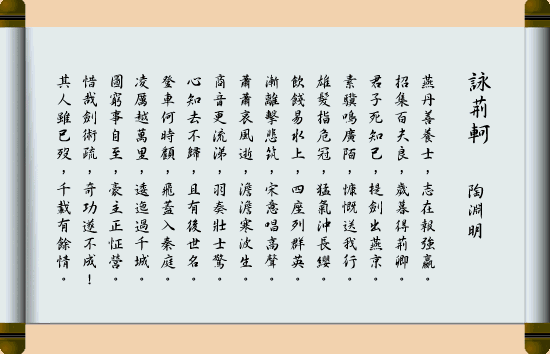 詠荊軻　　陶淵明
燕丹善養士，志在報強嬴。
招集百夫良，歲暮得荊卿。
君子死知己，提劍出燕京。
素驥鳴廣陌，慷慨送我行。
雄髮指危冠，猛氣沖長纓。
飲餞易水上，四座列群英。
漸離擊悲筑，宋意唱高聲。
蕭蕭哀風逝，澹澹寒波生。
商音更流涕，羽奏壯士驚。
心知去不歸，且有後世名。
登車何時顧，飛蓋入秦庭。
凌厲越萬里，逶迤過千城。
圖窮事自至，豪主正怔營。
惜哉劍術疏，奇功遂不成！
其人雖已歿，千載有餘情。